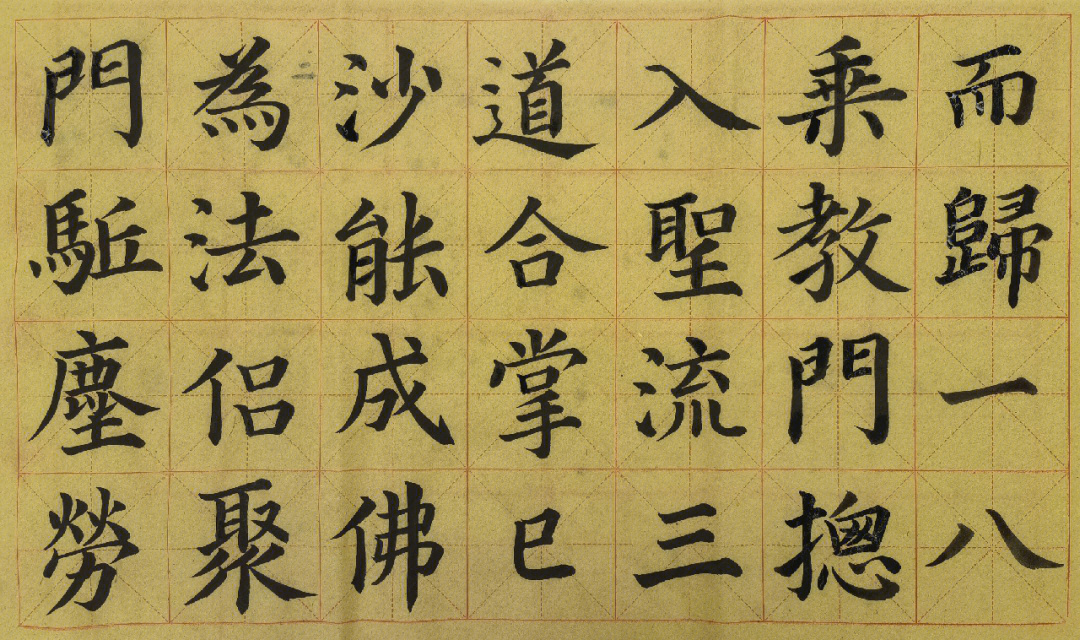 而歸一八
乗教門摠
入聖流三
道合掌已
沙能成佛
為法侶聚
門駈塵勞